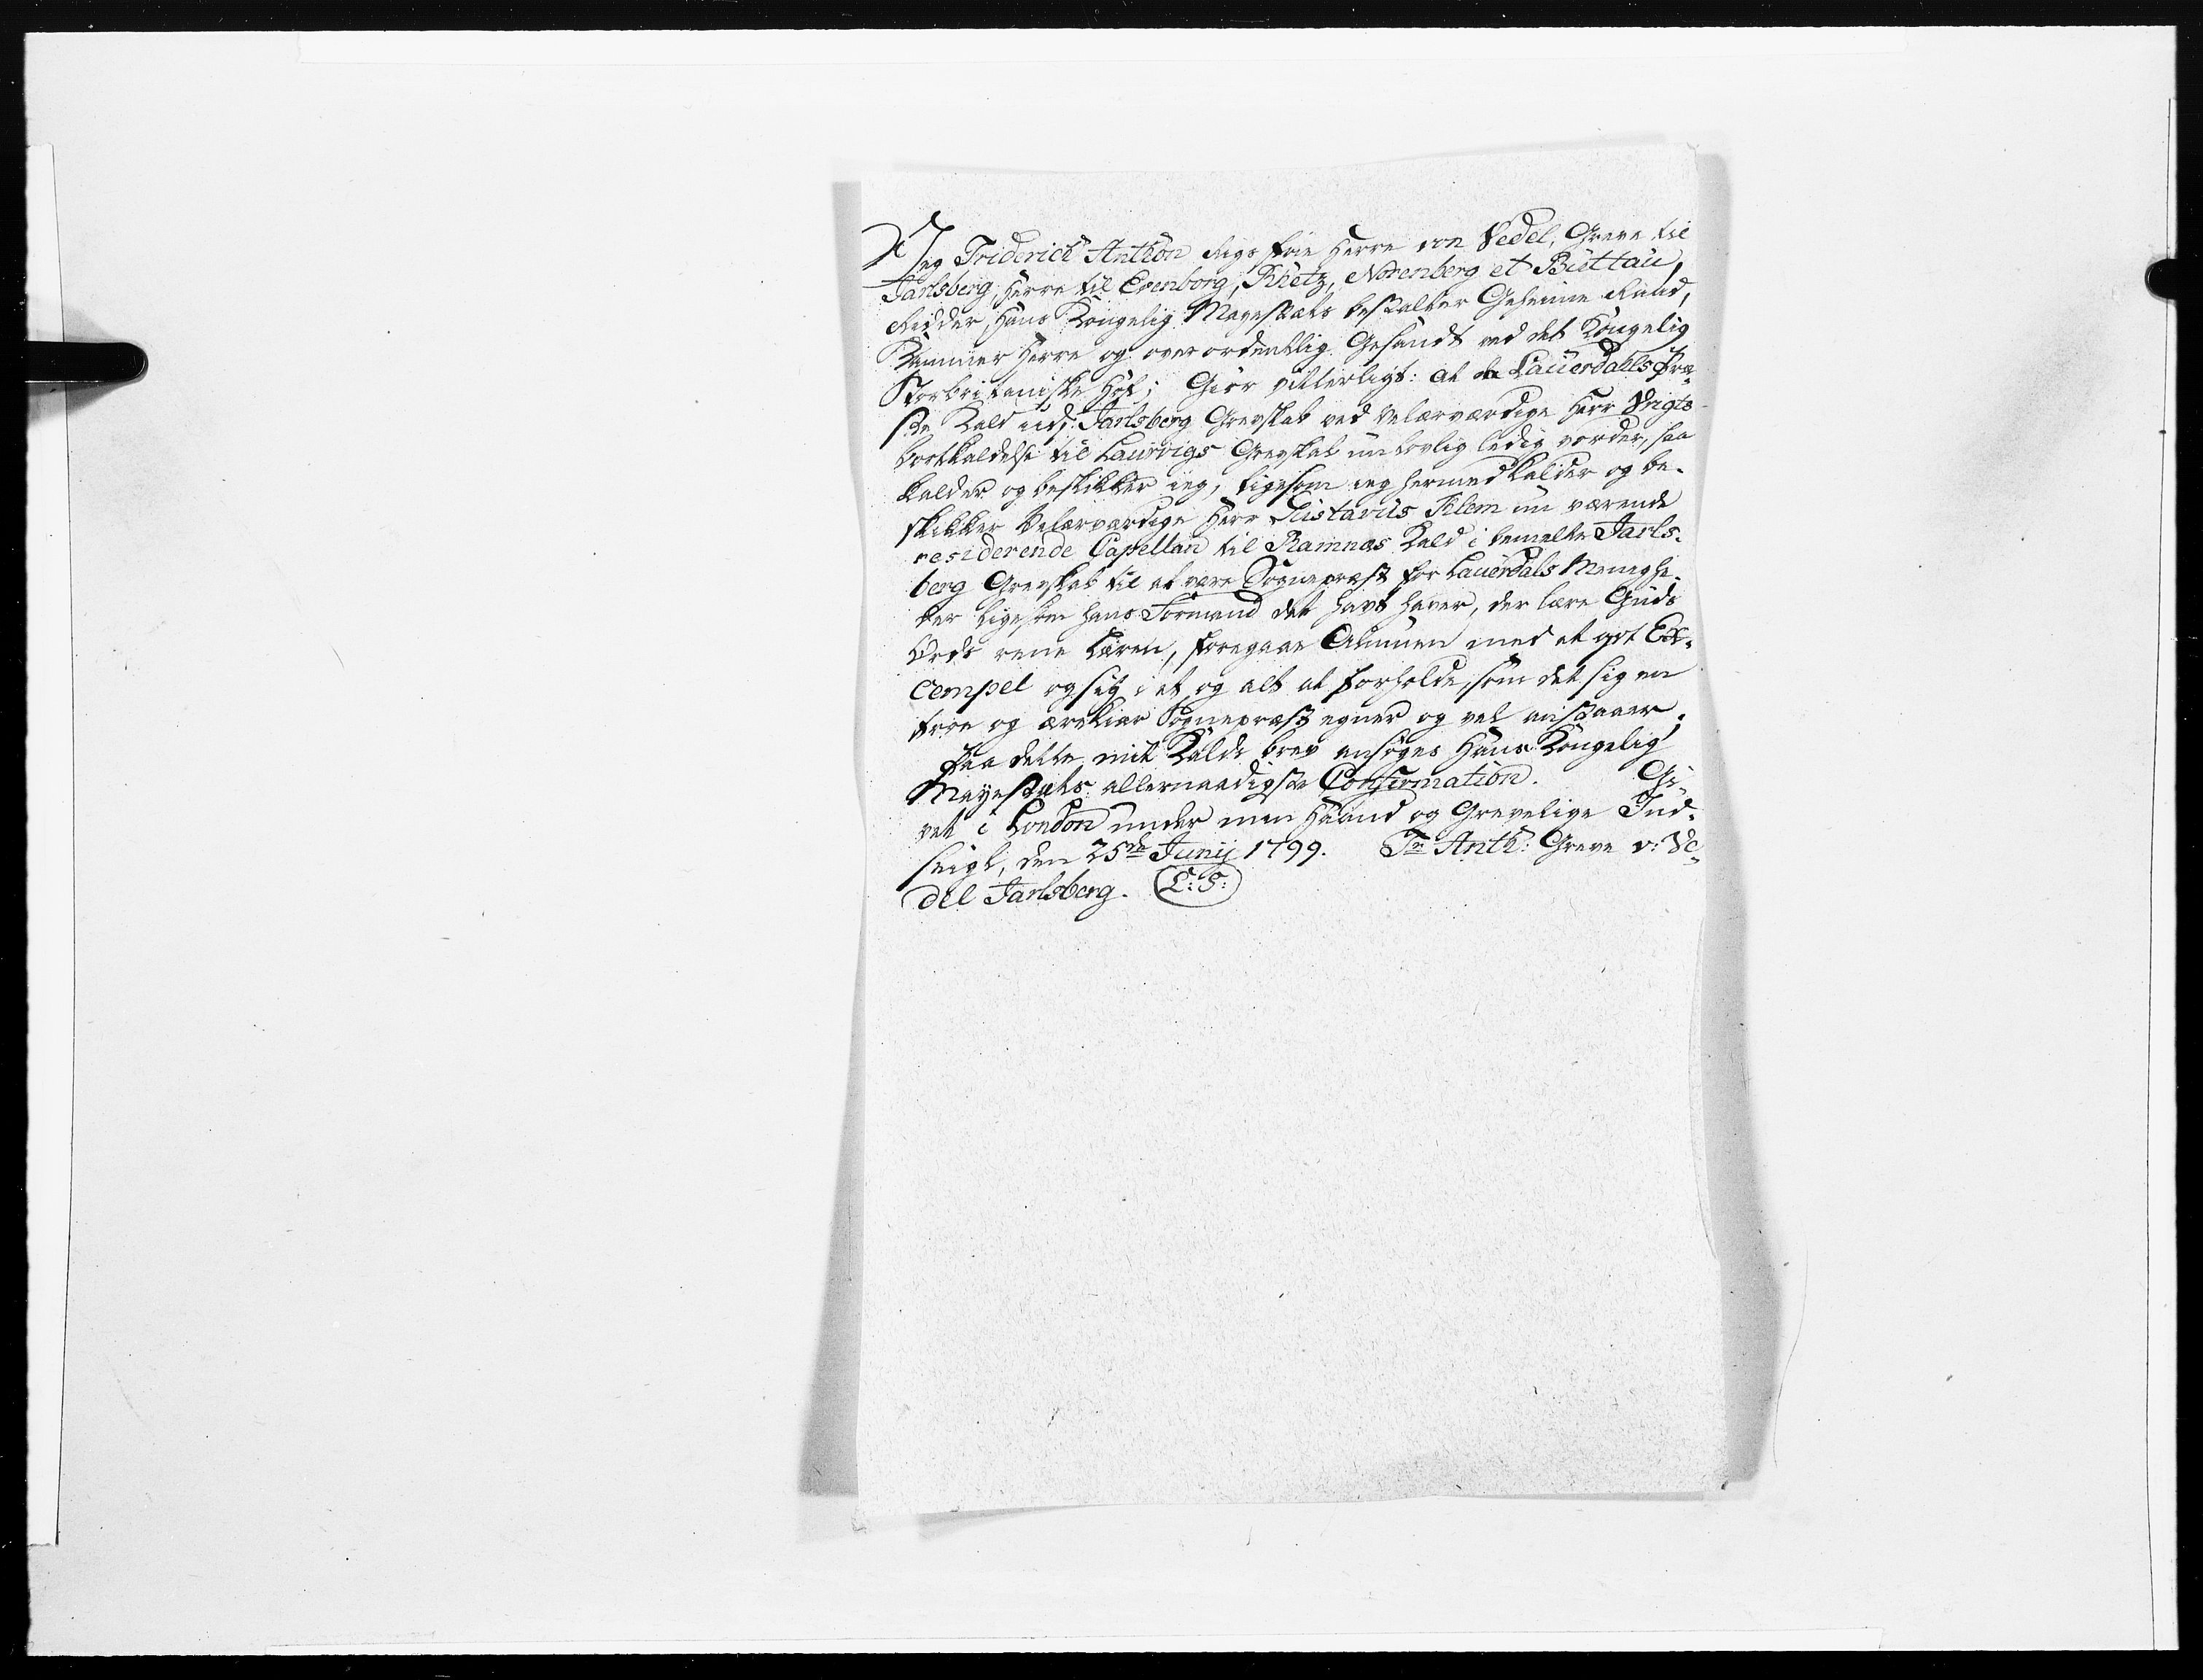 Jeg Friderich Anthon Rigs frie Herre von Vedel, Greve til
Jarlsberg, Herre til Evenborg, Kretz, Norenberg et Büttau,
Ridder, Hans Kongelig Mayestæts bestalter Geheime Raad,
Kammer Herre og over ordentlig Gesandt ved det Kongelig
Storbritaniske Hof; Giør vitterligt: at da Lauerdahls Præ-
ste Kald udi Jarlsberg Grevskab ved Velærværdige Herr Vrigts
bortkaldelse til Laurvigs Grevskab nu lovlig ledig vorder, saa
kalder og beskikker ieg, ligesom ieg hermed kalder og be-
skikker Velærværdige Herr Gustavus Klem nu værende
residerende Capellan til Ramnæs Kald i bemelte Jarls-
berg Grevskab til at være Sognepræst for Lauerdals Menighe-
der ligesom hans Formand det havt haver, der lære Guds
Ords rene Læren, foregaae Almuen med et got Ex-
cempel og sig i et og alt at forholde, som det sig en
troe og ærekiær Sognepræst egner og vel anstaaer.
Paa dette mit Kalds brev ansøges Hans Kongelig
Mayestæts allernaadigste Confirmation. Gi-
vet i London under min Haand og Grevelige Ind-
seigl, den 25de Junij 1799. Fr. Anth: Greve v: Ve-
del Jarlsberg. L: S: